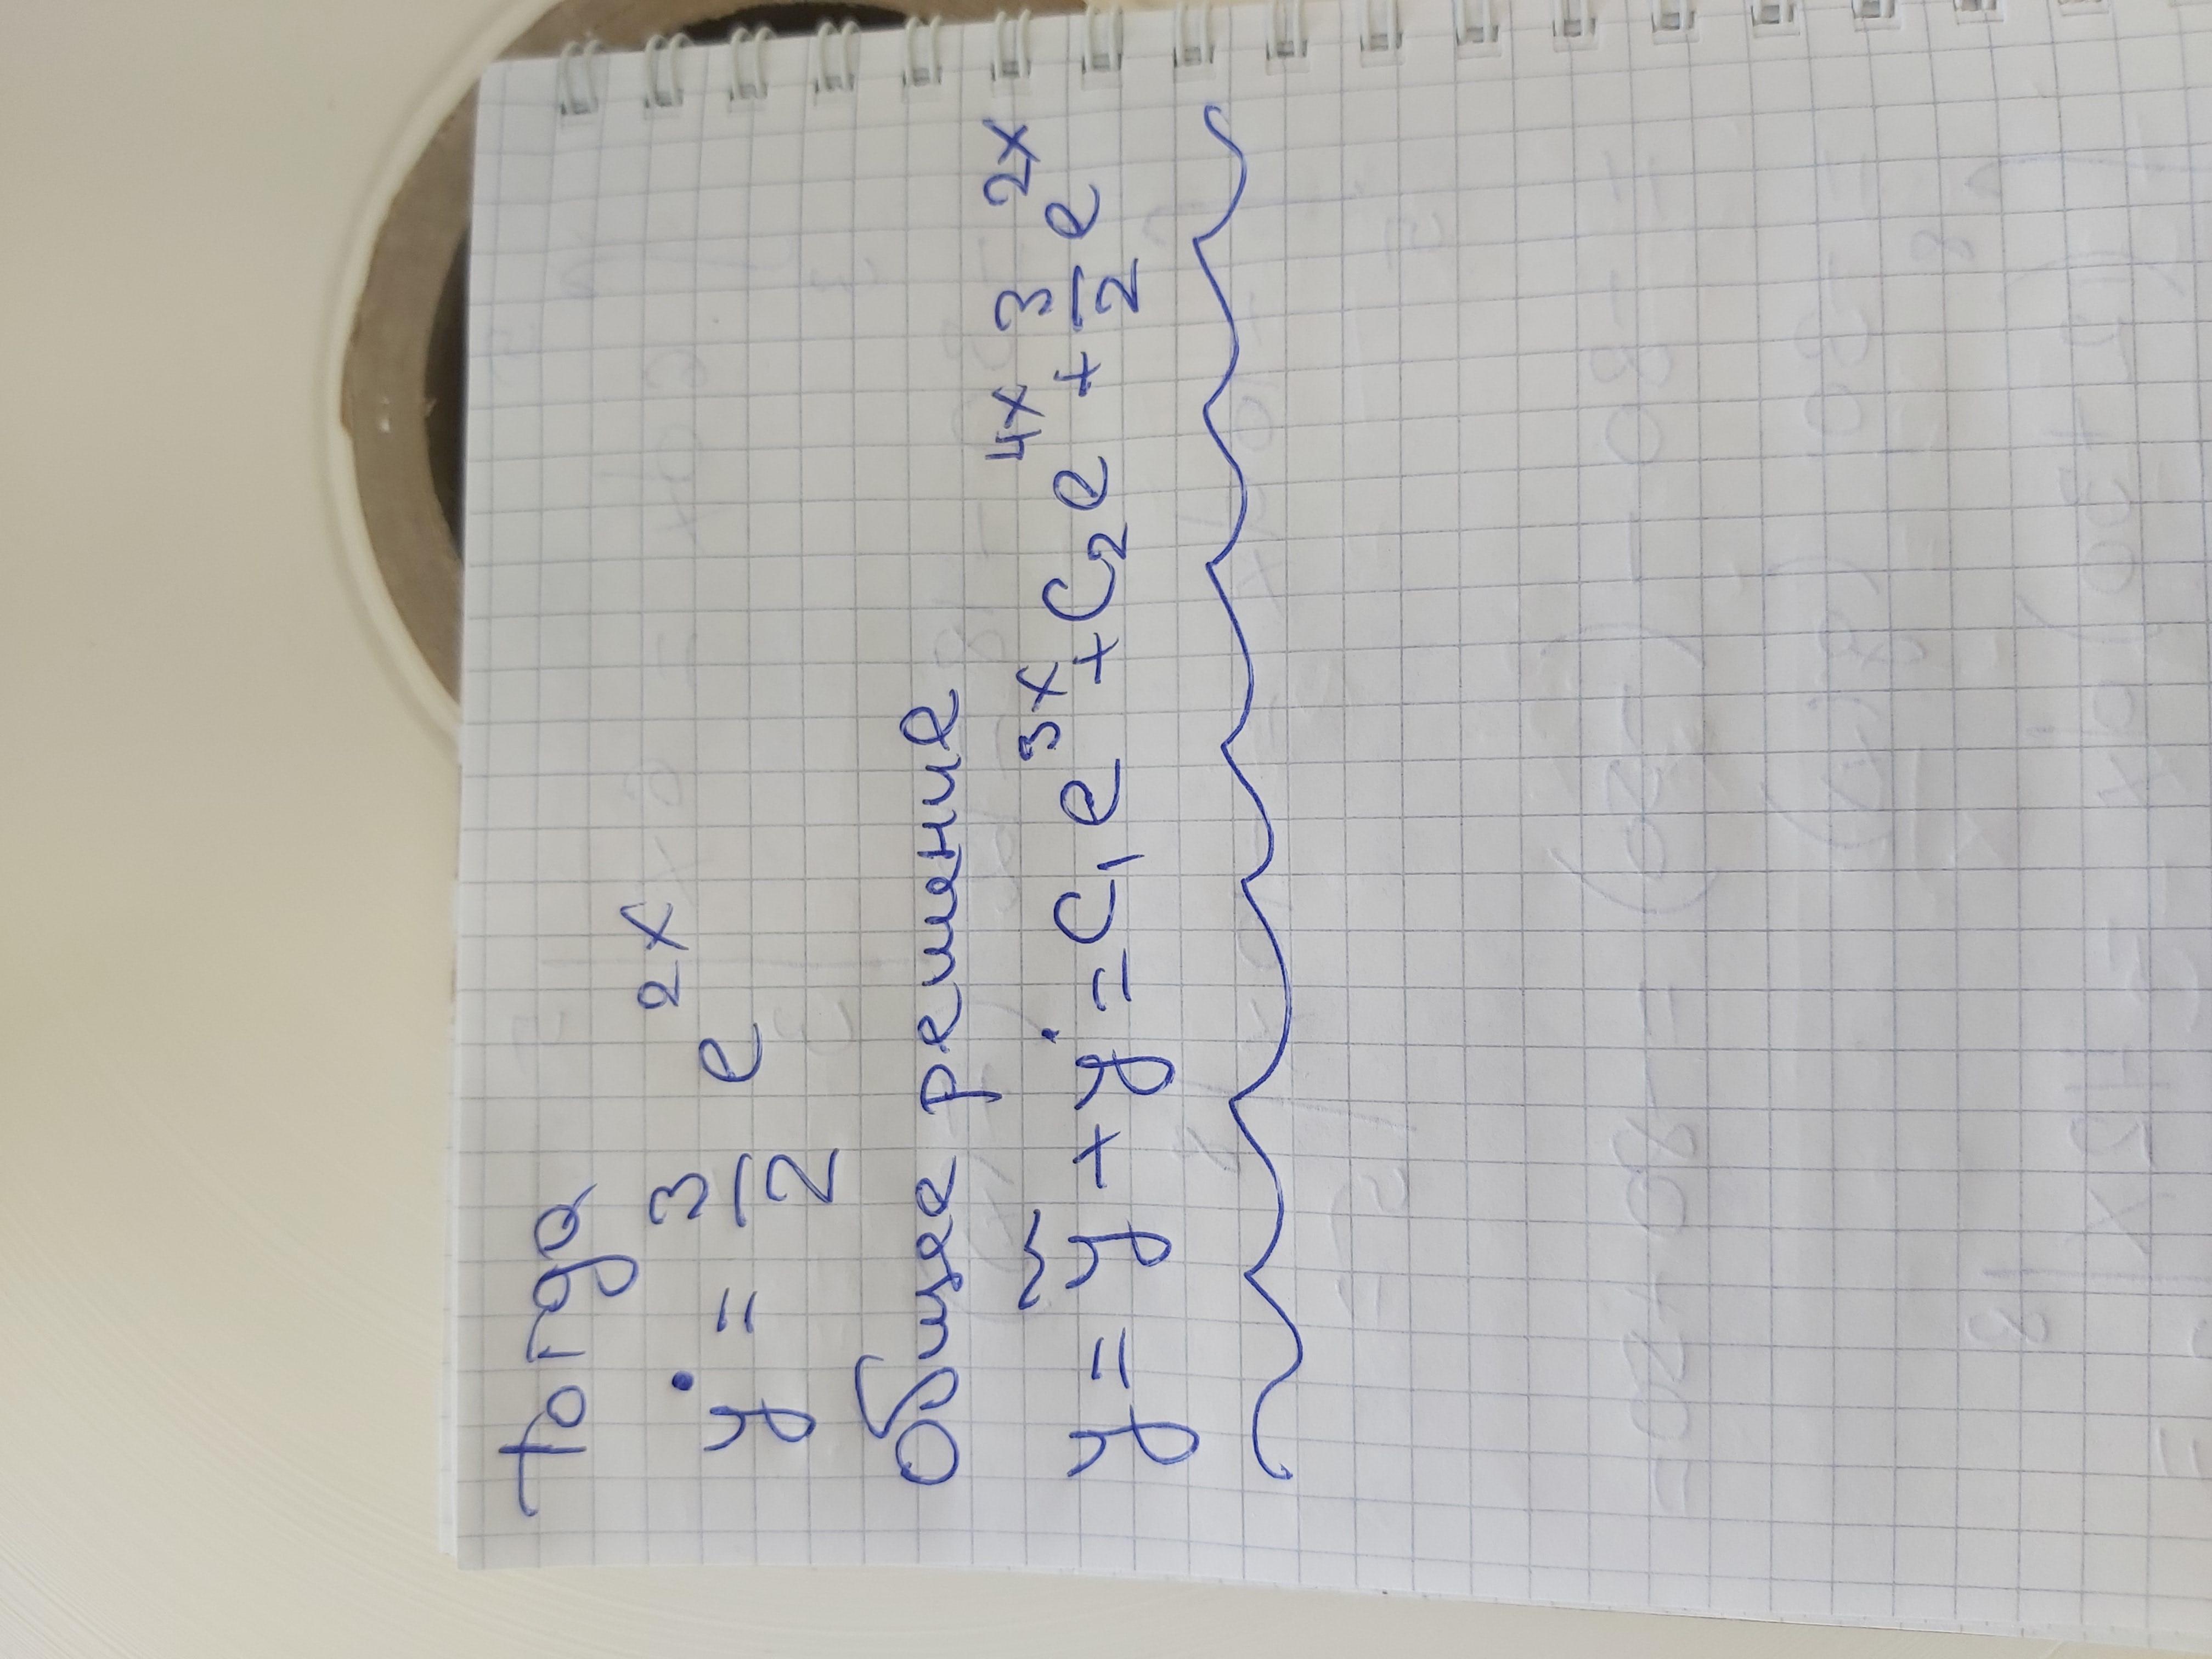 тогда
ẏ = 3/2 e^2x
Общее решение
y = ỹ + ẏ = C₁e^3x + C₂e^4x + 3/2 e^2x